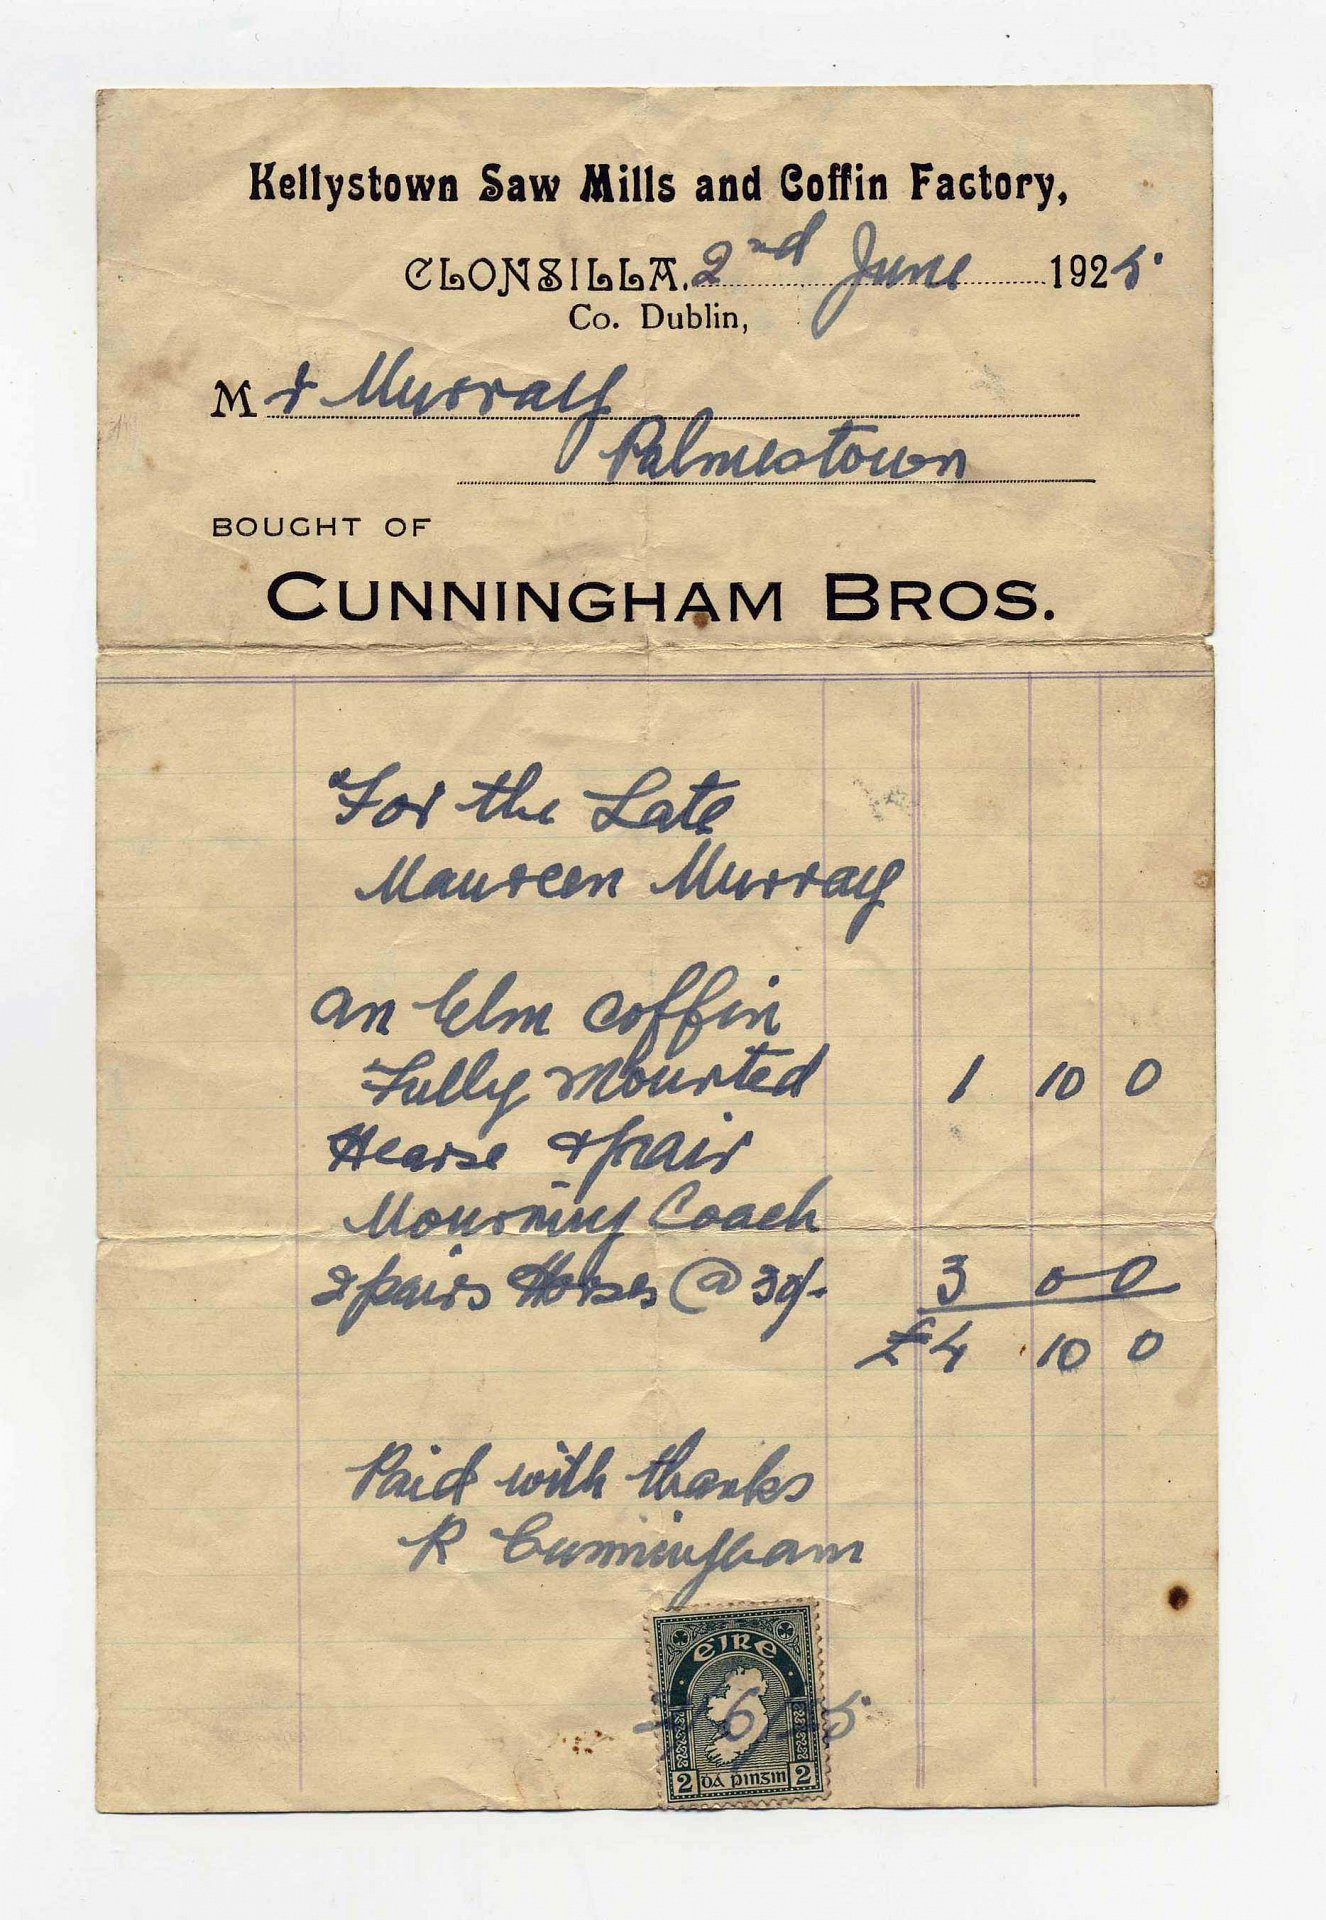 Kellystown Saw Mills and Coffin Factory,
CLONSILLA. 2nd June 1925.
Co. Dublin,
Mr Murray
Palmestown
BOUGHT OF
CUNNINGHAM BROS.
For the Late
Maureen Murray
an Elm Coffin
Fully Mounted 1 10 0
Hearse & pair
Mourning Coach
& pairs Horses @ 30/- 3 0 0
£4 10 0
Paid with thanks
R Cunningham
EIRE
6/25.
2 DÁ PINGIN 2